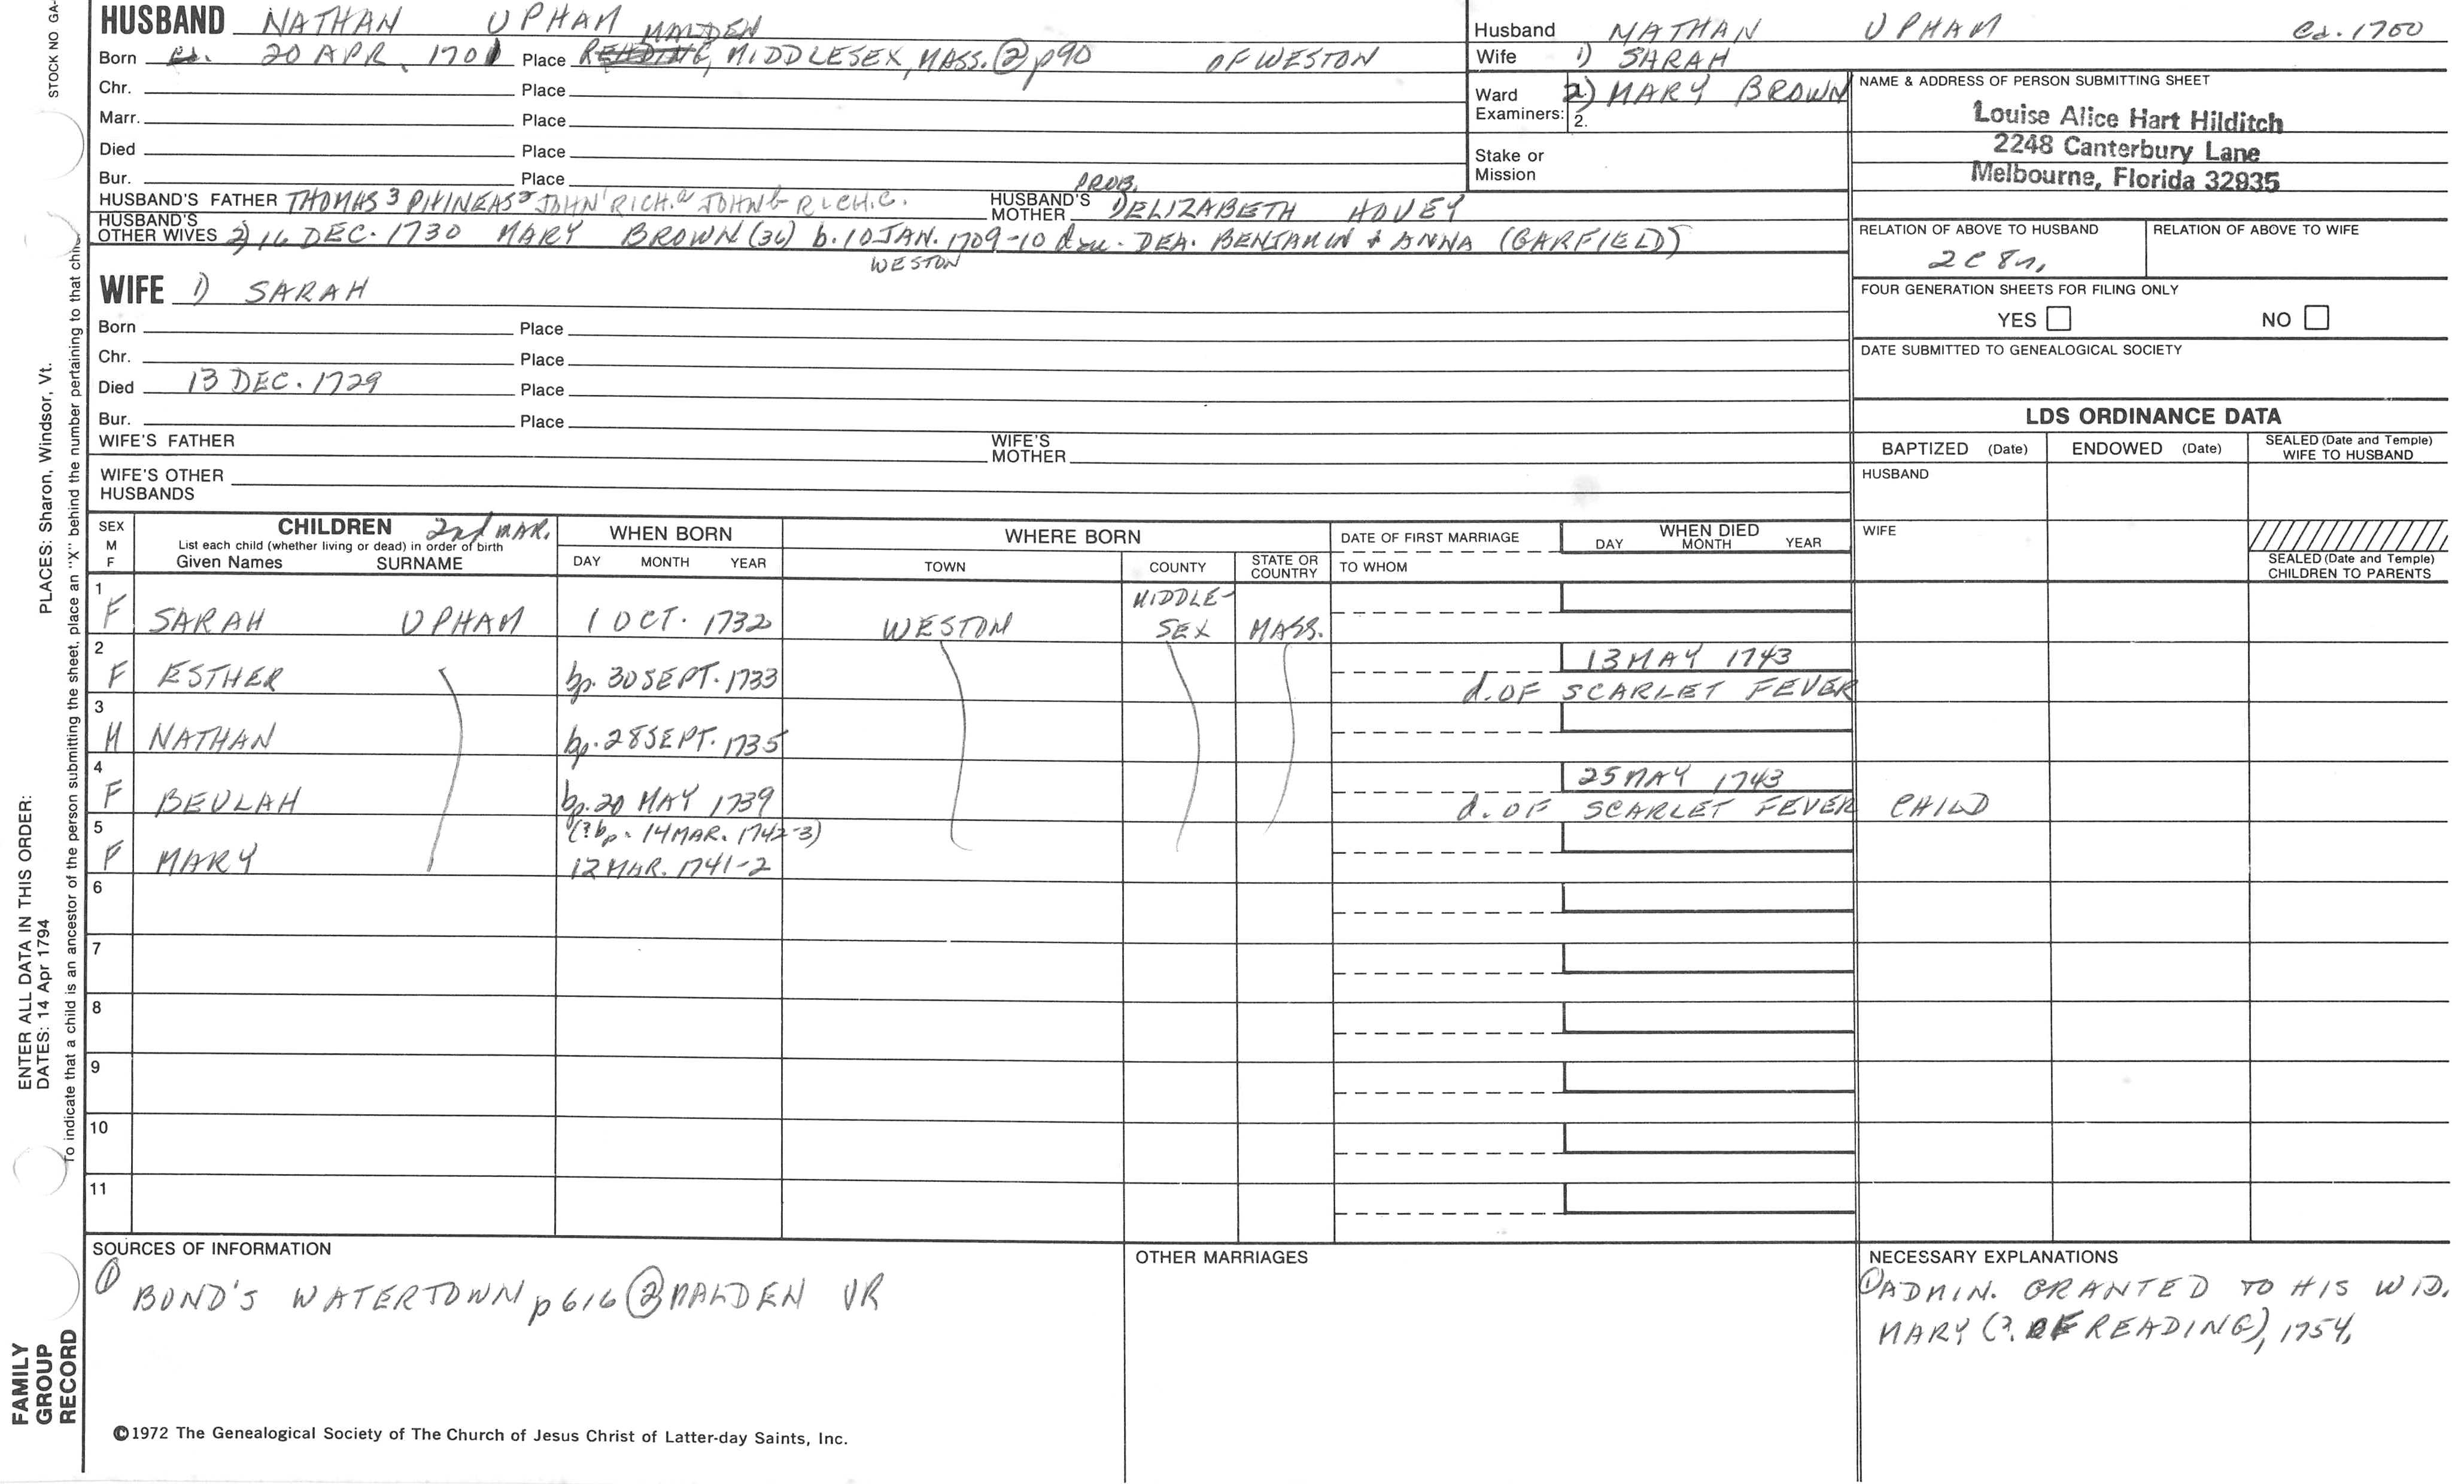 STOCK NO GA-
HUSBAND NATHAN UPHAM MALDEN
Born 20 APR. 1701 Place READING, MIDDLESEX, MASS. ② p90 OF WESTON
Chr. Place
Marr. Place
Died Place
Bur. Place
HUSBAND'S FATHER THOMAS 3 PHINEAS 2 JOHN 1 RICH. a JOHN b RICH. c.
PROB.
HUSBAND'S MOTHER ELIZABETH HOVEY
HUSBAND'S OTHER WIVES 2) 16 DEC. 1730 MARY BROWN (36) b. 10 JAN. 1709-10 dau. DEA. BENJAMIN & ANNA (GARFIELD)
WESTON
Husband NATHAN UPHAM ca. 1700
Wife 1) SARAH
Ward 2) MARY BROWN
Examiners: 2.
Stake or
Mission
NAME & ADDRESS OF PERSON SUBMITTING SHEET
Louise Alice Hart Hilditch
2248 Canterbury Lane
Melbourne, Florida 32935
RELATION OF ABOVE TO HUSBAND RELATION OF ABOVE TO WIFE
2C 8r.
FOUR GENERATION SHEETS FOR FILING ONLY
YES NO
DATE SUBMITTED TO GENEALOGICAL SOCIETY
WIFE 1) SARAH
Born Place
Chr. Place
Died 13 DEC. 1729 Place
Bur. Place
WIFE'S FATHER WIFE'S MOTHER
WIFE'S OTHER
HUSBANDS
LDS ORDINANCE DATA
BAPTIZED (Date) ENDOWED (Date) SEALED (Date and Temple) WIFE TO HUSBAND
HUSBAND
WIFE
SEALED (Date and Temple)
CHILDREN TO PARENTS
SEX M F CHILDREN 2nd MAR.
List each child (whether living or dead) in order of birth
Given Names SURNAME
WHEN BORN
DAY MONTH YEAR
WHERE BORN
TOWN COUNTY STATE OR COUNTRY
DATE OF FIRST MARRIAGE
TO WHOM
WHEN DIED
DAY MONTH YEAR
1 F SARAH UPHAM 1 OCT. 1732 WESTON MIDDLE-SEX MASS.
2 F ESTHER bp. 30 SEPT. 1733 13 MAY 1743
d. OF SCARLET FEVER
3 M NATHAN bp. 28 SEPT. 1735
4 F BEULAH bp. 20 MAY 1739 25 MAY 1743
d. OF SCARLET FEVER CHILD
5 F MARY (? bp. 14 MAR. 1742-3)
12 MAR. 1741-2
6
7
8
9
10
11
SOURCES OF INFORMATION
① BOND'S WATERTOWN p616 ② MALDEN VR
OTHER MARRIAGES
NECESSARY EXPLANATIONS
① ADMIN. GRANTED TO HIS WID.
MARY (?. OF READING), 1754.
©1972 The Genealogical Society of The Church of Jesus Christ of Latter-day Saints, Inc.
FAMILY
GROUP
RECORD
ENTER ALL DATA IN THIS ORDER:
DATES: 14 Apr 1794
PLACES: Sharon, Windsor, Vt.
To indicate that a child is an ancestor of the person submitting the sheet, place an "X" behind the number pertaining to that